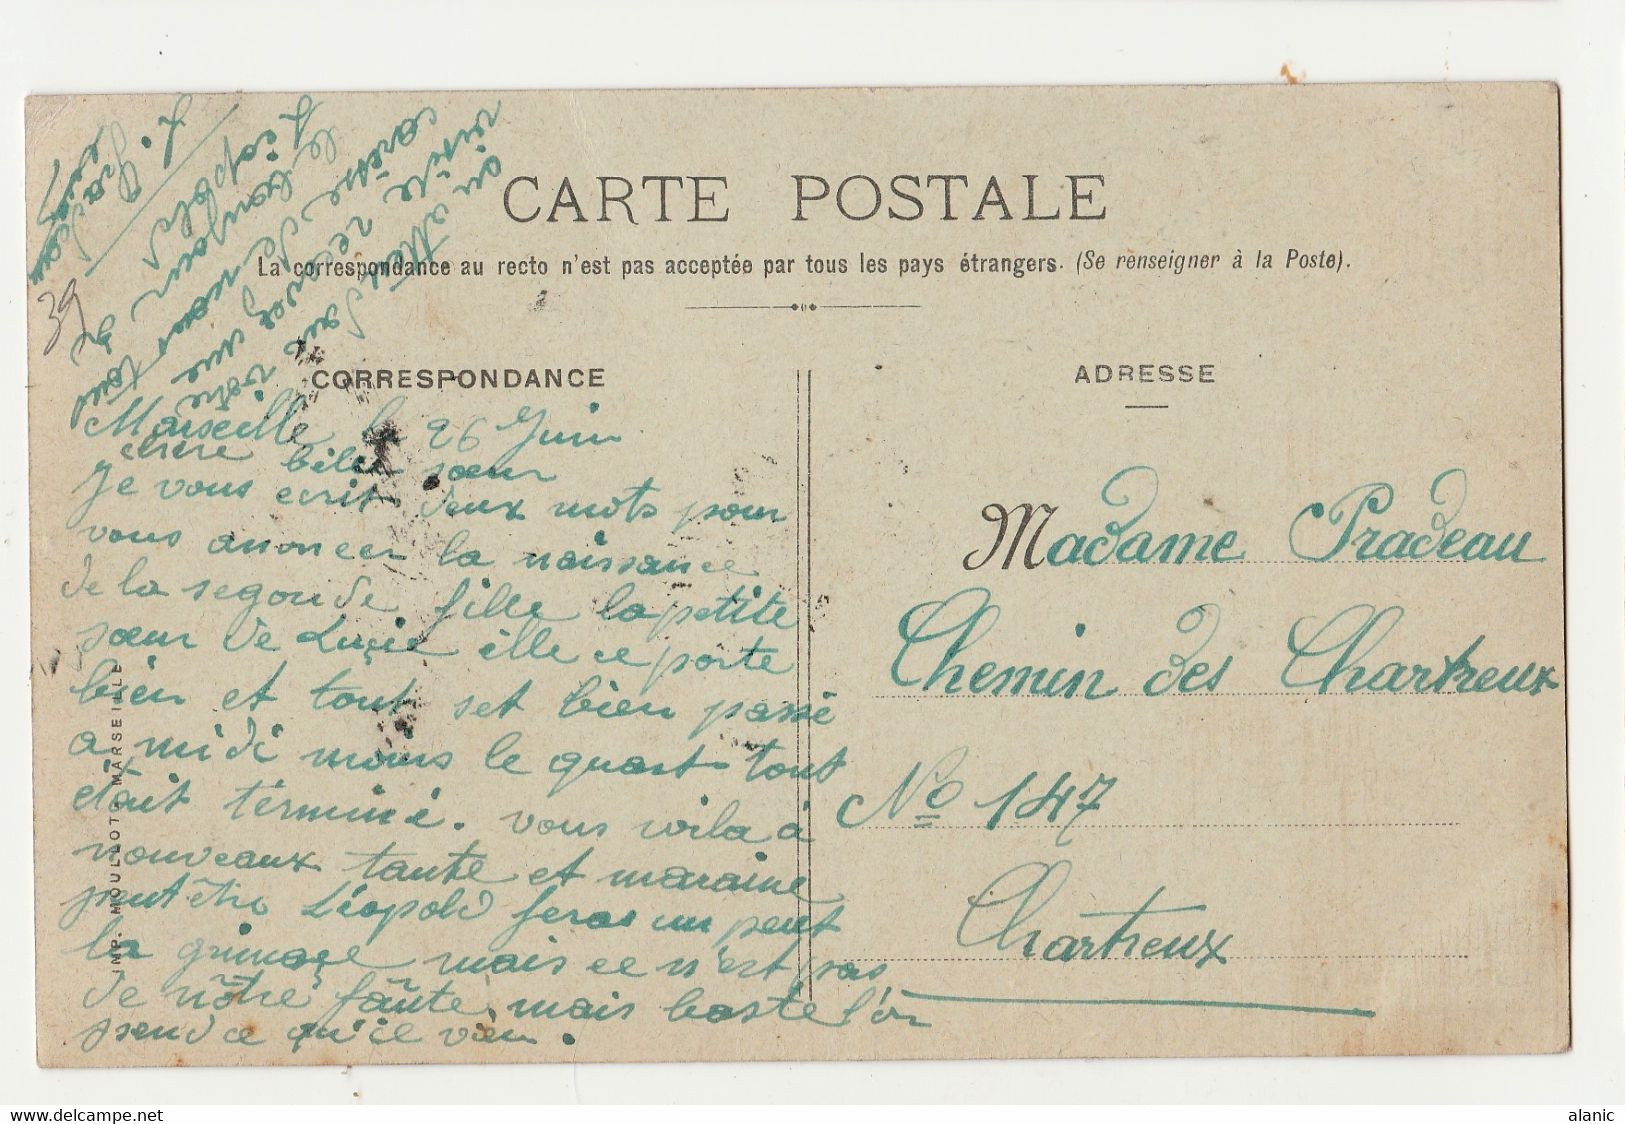 CARTE POSTALE
La correspondance au recto n'est pas acceptée par tous les pays étrangers. (Se renseigner à la Poste).
CORRESPONDANCE
Marseille le 26 Juin
chere belle sœur
Je vous ecrit deux mots pour
vous anoncer la naissance
de la segonde fille la petite
sœur de Lucie elle ce porte
bien et tout set bien passé
a midi moins le quart tout
etait términé. vous voila à
nouveaux tante et maraine
peut être Léopold feras un peut
la grimace mais ce n'est pas
de nôtre faute mais baste l'on
prend ce qu'il vien.
on attend sur votre
visite recevez une
caresse de nous tous
le bonjour de
Léopold
39
IMP. MOULLOT MARSEILLE
ADRESSE
Madame Pradeau
Chemin des Chartreux
No 147
Chartreux
delcampe.net
alanic